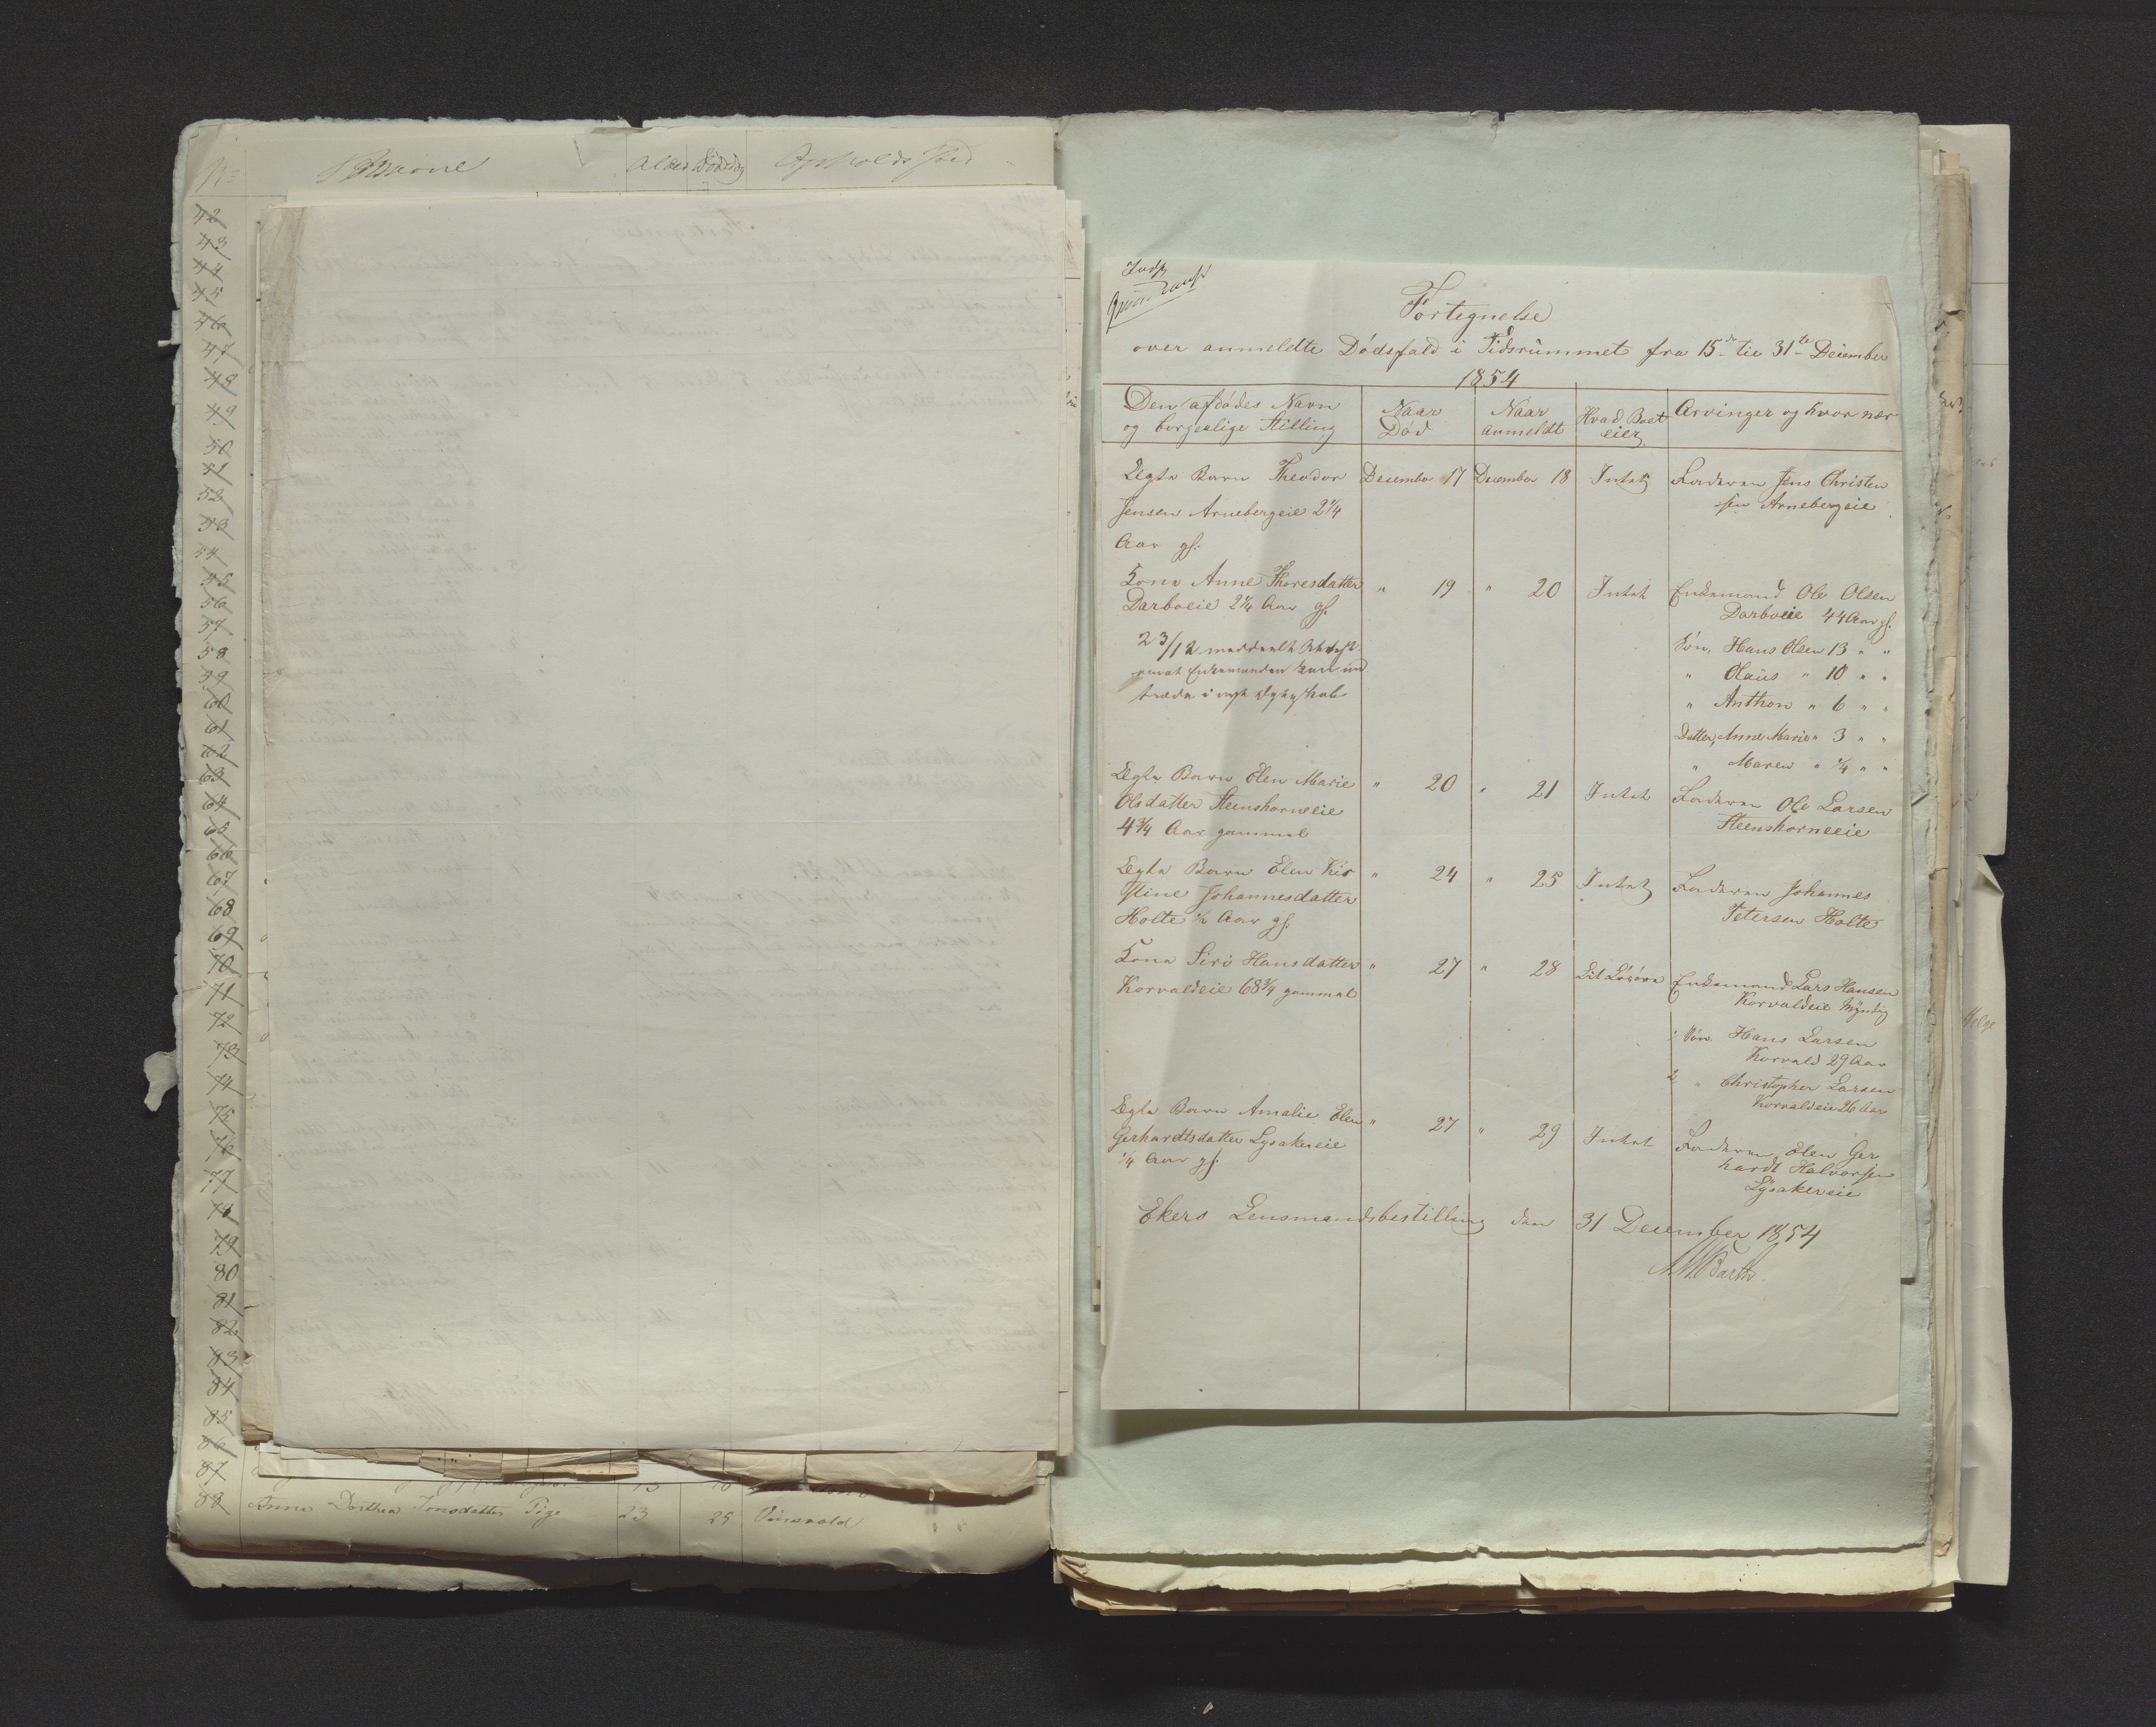 No
Alder
Dødsdag
Opholds Sted
42
43
44
45
46
47
48
49
50
51
52
53
54
55
56
57
58
59
60
61
62
63
64
65
66
67
68
69
70
71
72
73
74
75
76
77
78
79
80
81
82
83
84
85
86
87
88 Anne Dorthea Jonsdatter Pige 23 25
Fortegnelse
over anmeldte Dødsfald i Tidsrummet fra 15de til 31te December
1854
Den afdødes Navn
og borgerlige Stilling
Naar
Død
Naar
anmeldt
Hvad Boet
eier
Arvinger og hvor nær
Ægte Barn Theodor December 17 December 18 Intet Faderen Jens Christen
Jensen Arnebergeie 2 1/4 sen Arnebergeie
Aar gl.
Kone Anne Thoresdatter " 19 " 20 Intet Enkemand Ole Olsen
Darboeie Aar gl. Darboeie 44 Aar gl.
23/12 meddeelt Attest Søn, Hans Olsen 13 " "
Enkemanden kan ind " Olaus " 10 " "
træde i nyt Ægteskab " Anthon " 6 " "
Datter, Anne Marie " 3 " "
" Maren " 1/4 " "
Ægte Barn Elen Marie " 20 " 21 Intet Faderen Ole Larsen
Olsdatter Steenshorneeie Steenshorneeie
4 3/4 Aar gammel
Ægte Barn Elen Kir " 24 " 25 Intet Faderen Johannes
stine Johannesdatter Petersen Holte
Holte 1/2 Aar gl.
Kone Siri Hansdatter " 27 " 28 Lit Løsøre Enkemand Lars Hansen
Korvaldeie 68 3/4 gammel Korvaldeie Myndig
1 Søn. Hans Larsen
Korvald 29 Aar
2 " Christopher Larsen
Korvaldeie 26 Aar
Ægte Barn Amalie Elen " 27 " 29 Intet Faderen, Elen Ger
Gerhardtsdatter Lysakereie hardt Halvorsen
1/4 Aar gl. Lysakereie
Ekers Lensmandsbestilling den 31 December 1854
Barth